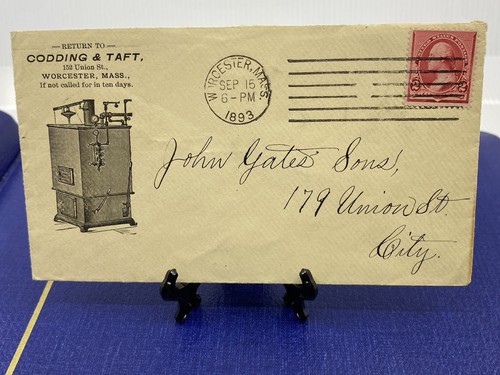 RETURN TO
CODDING & TAFT,
152 Union St.,
WORCESTER, MASS.,
If not called for in ten days.
WORCESTER, MASS.
SEP 15
6-PM
1893
John Gates' Sons',
179 Union St.
City.